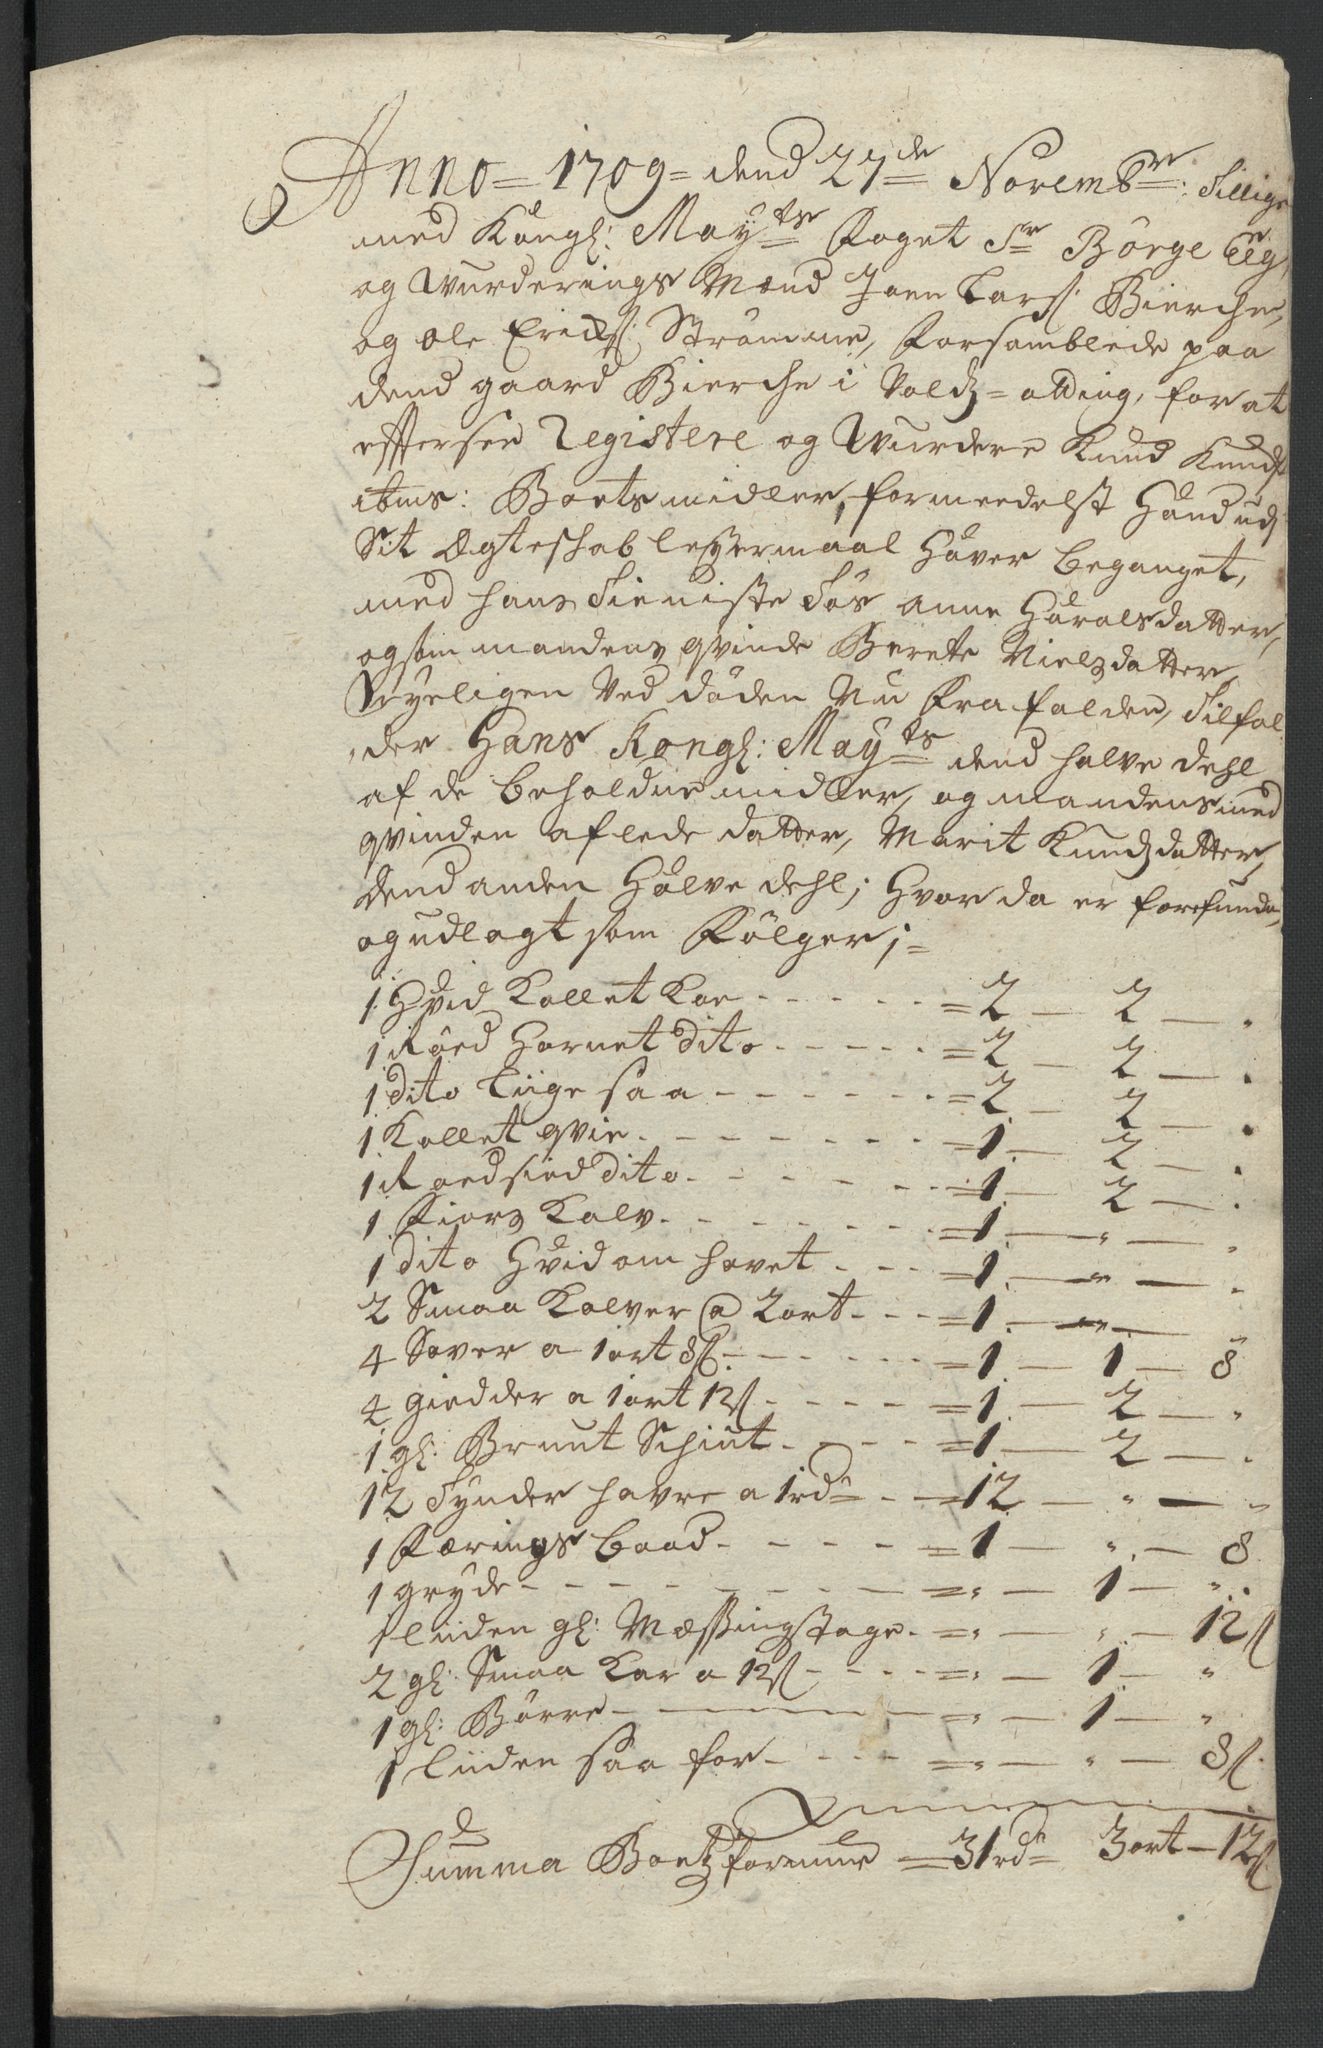 Anno = 1709 = dend 27de Novembr: Tillige
med Kongl: Mayts Foget Sr Børge Eeg,
og Wurderings Mænd Joen Larß: Bierche,
og Ole Erichß: Strømme, Forsamblede paa
dend gaard Bierche i Voldß=otting, for at
eftersee Registere og Wurdere Knud Knudß
ibms: Boets midler, formeedelst Hand udj
Sit Ægteschab leyermaal Haver beganget,
med hans Tieniste Tøs Anne Haralsdatter,
og som mandens qvinde Berete Nielsdatter
Nyeligen Ved døden Nu Fra falden, Tilfal-
der Hans Kongl: Mayts dend halve dehl
af de beholdne midler, og mandens med
qvinden aflede datter, Marit Knudsdatter,
dend anden Halve dehl; Hvor da er forefunden
og udlagt som Følger;=
1 Hvid Kollet Koe - - - - - = 2 — 2 — "
1 Røed Hornet dito - - - - - = 2 — 2 — "
1 dito liige saa - - - - - - = 2 — 2 — "
1 Kollet qvie - - - - - - = 1 — 2 — "
1 Roedsied dito - - - - - - = 1 — 2 — "
1 Fiors Kalv - - - - - - = 1 — " — "
1 dito Hvid om hovet - - - = 1 — " — "
2 Smaa Kalver @ 2 ort - - - = 1 — " — "
4 Sover a 1 ort 8ß - - - - - = 1 — 1 — 8
4 giedder a 1 ort 12ß - - - - = 1 — 2 — "
1 gl: Brunt Schiut - - - - = 1 — 2 — "
12 Tynder havre a 1 rdr - - = 12 — " — "
1 Færings baad - - - - - = 1 — " — 8
1 gryde - - - - - - - = " — 1 — "
1 liiden gl: Messingstage - = " — " — 12ß
2 gl: Smaa Kar a 12ß - - - - = " — 1 — "
1 gl: Børre — — — = " — 1 — "
1 liiden saa for - - - - = " — " — 8ß
Summa Boetz formue = 31 rdr 3 ort — 12ß